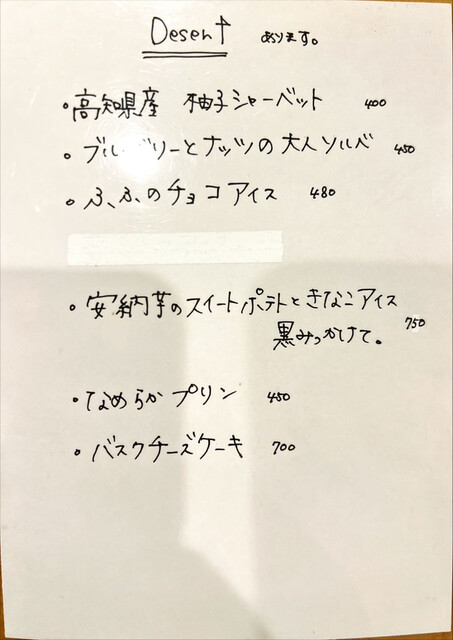 Desert あります。
・高知県産 柚子シャーベット 400
・ブルーベリーとナッツの大人ソルベ 450
・ふ、ふのチョコアイス 480
・安納芋のスイートポテトときなこアイス
黒みつかけて。 750
・なめらかプリン 450
・バスクチーズケーキ 700